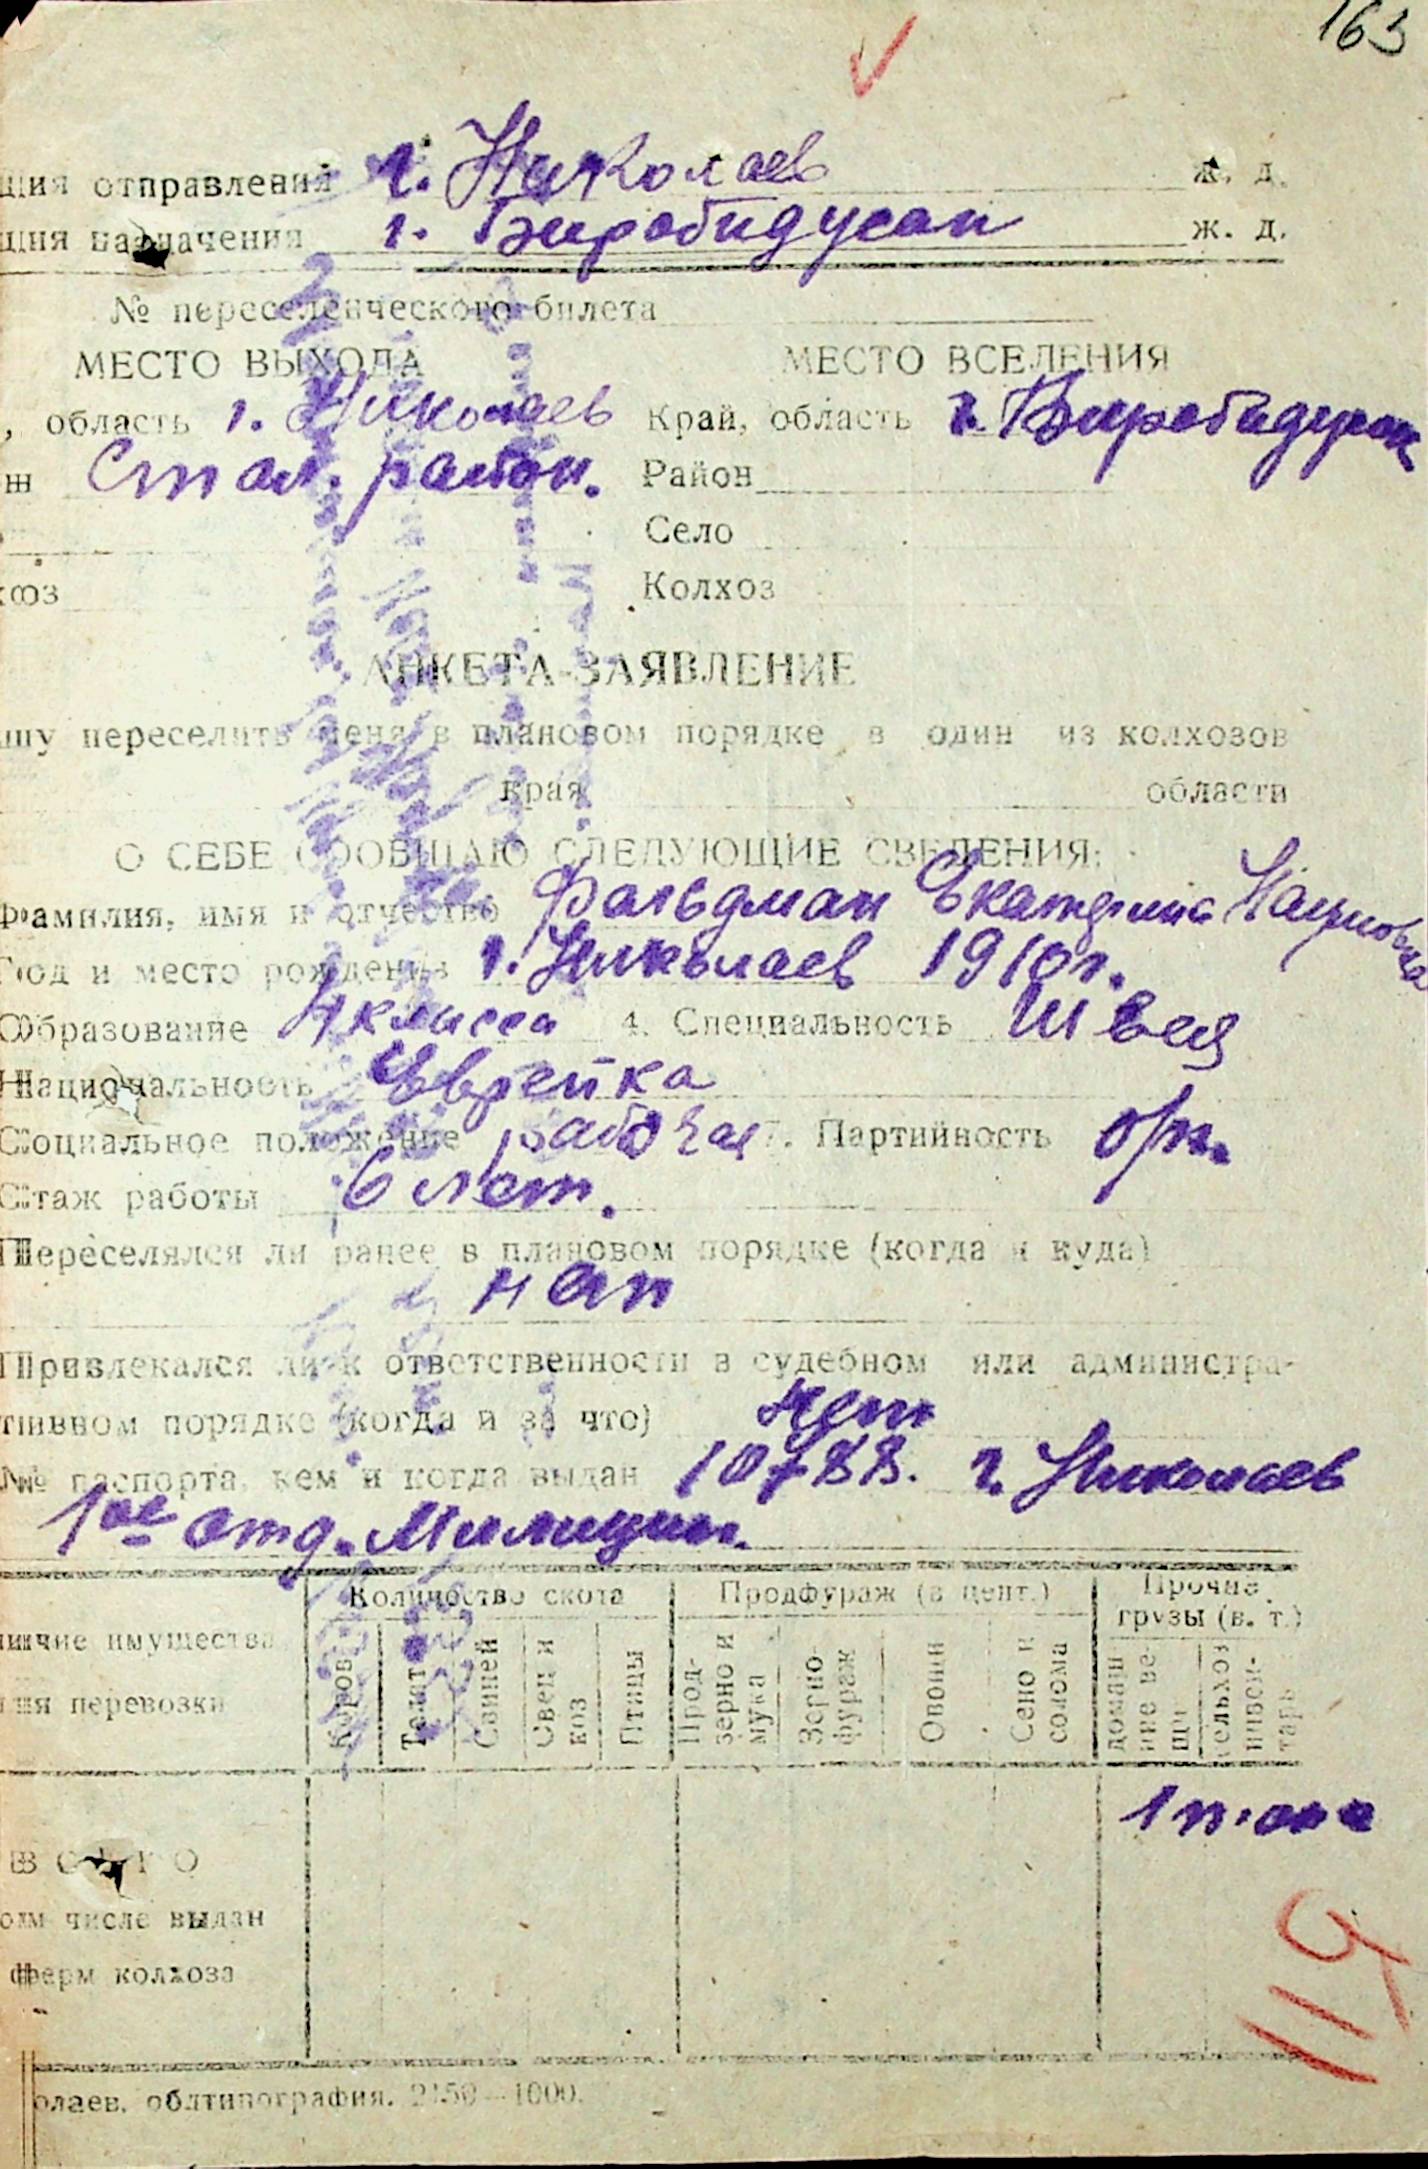 163
ция отправления г. Николаев ж. д.
ция назначения г. Биробиджан ж. д.
№ переселенческого билета
МЕСТО ВЫХОДА МЕСТО ВСЕЛЕНИЯ
, область г. Николаев Край, область г. Биробиджан
Стал. район. Район
Село
хоз Колхоз
АНКЕТА-ЗАЯВЛЕНИЕ
шу переселить меня в плановом порядке в один из колхозов
края области
О СЕБЕ СООБЩАЮ СЛЕДУЮЩИЕ СВЕДЕНИЯ:
Фамилия, имя и отчество Фальдман Екатерина Наумовна
Год и место рождения г. Николаев 1910 г.
Образование 4 класса 4. Специальность Швея
Национальность Еврейка
Социальное положение рабочая 7. Партийность
Стаж работы 6 лет.
Переселялся ли ранее в плановом порядке (когда и куда)
Привлекался ли к ответственности в судебном или администра-
тивном порядке (когда и за что) нет
№ паспорта, кем и когда выдан 10788. г. Николаев
1ое отд. Милиции.
Количество скота Продфураж (в цент.) Прочие грузы (в. т.)
личие имущества
для перевозки
Коров Телят Свиней Овец и коз Птицы Прод-зерно и мука Зерно-фураж Овощи Сено и солома домашние вещи сельхоз инвен-тарь
1 тона
ВСЕГО
ом числе выдан
ферм колхоза
511
олаев, облтипография. 2150—1000.